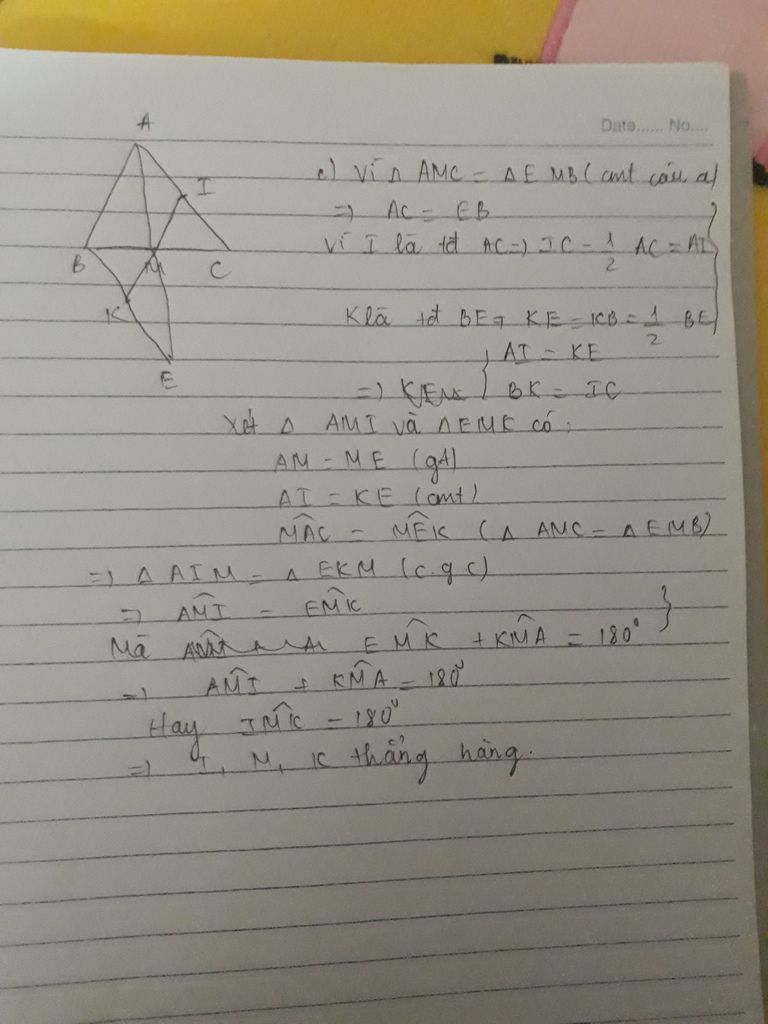 Date...... No....
A
I
B
M
C
K
E
c) Vì Δ AMC = Δ EMB (cmt câu a)
=> AC = EB
Vì I là tđ AC => IC = 1/2 AC = AI
K là tđ BE => KE = KB = 1/2 BE
=> { AI = KE
BK = IC
Xét Δ AMI và Δ EMK có:
AM = ME (gt)
AI = KE (cmt)
M̂AC = M̂EK (Δ AMC = Δ EMB)
=> Δ AIM = Δ EKM (c.g.c)
=> AM̂I = EM̂K
Mà EM̂K + KM̂A = 180⁰ }
=> AM̂I + KM̂A = 180⁰
Hay IM̂K = 180⁰
=> I, M, K thẳng hàng.